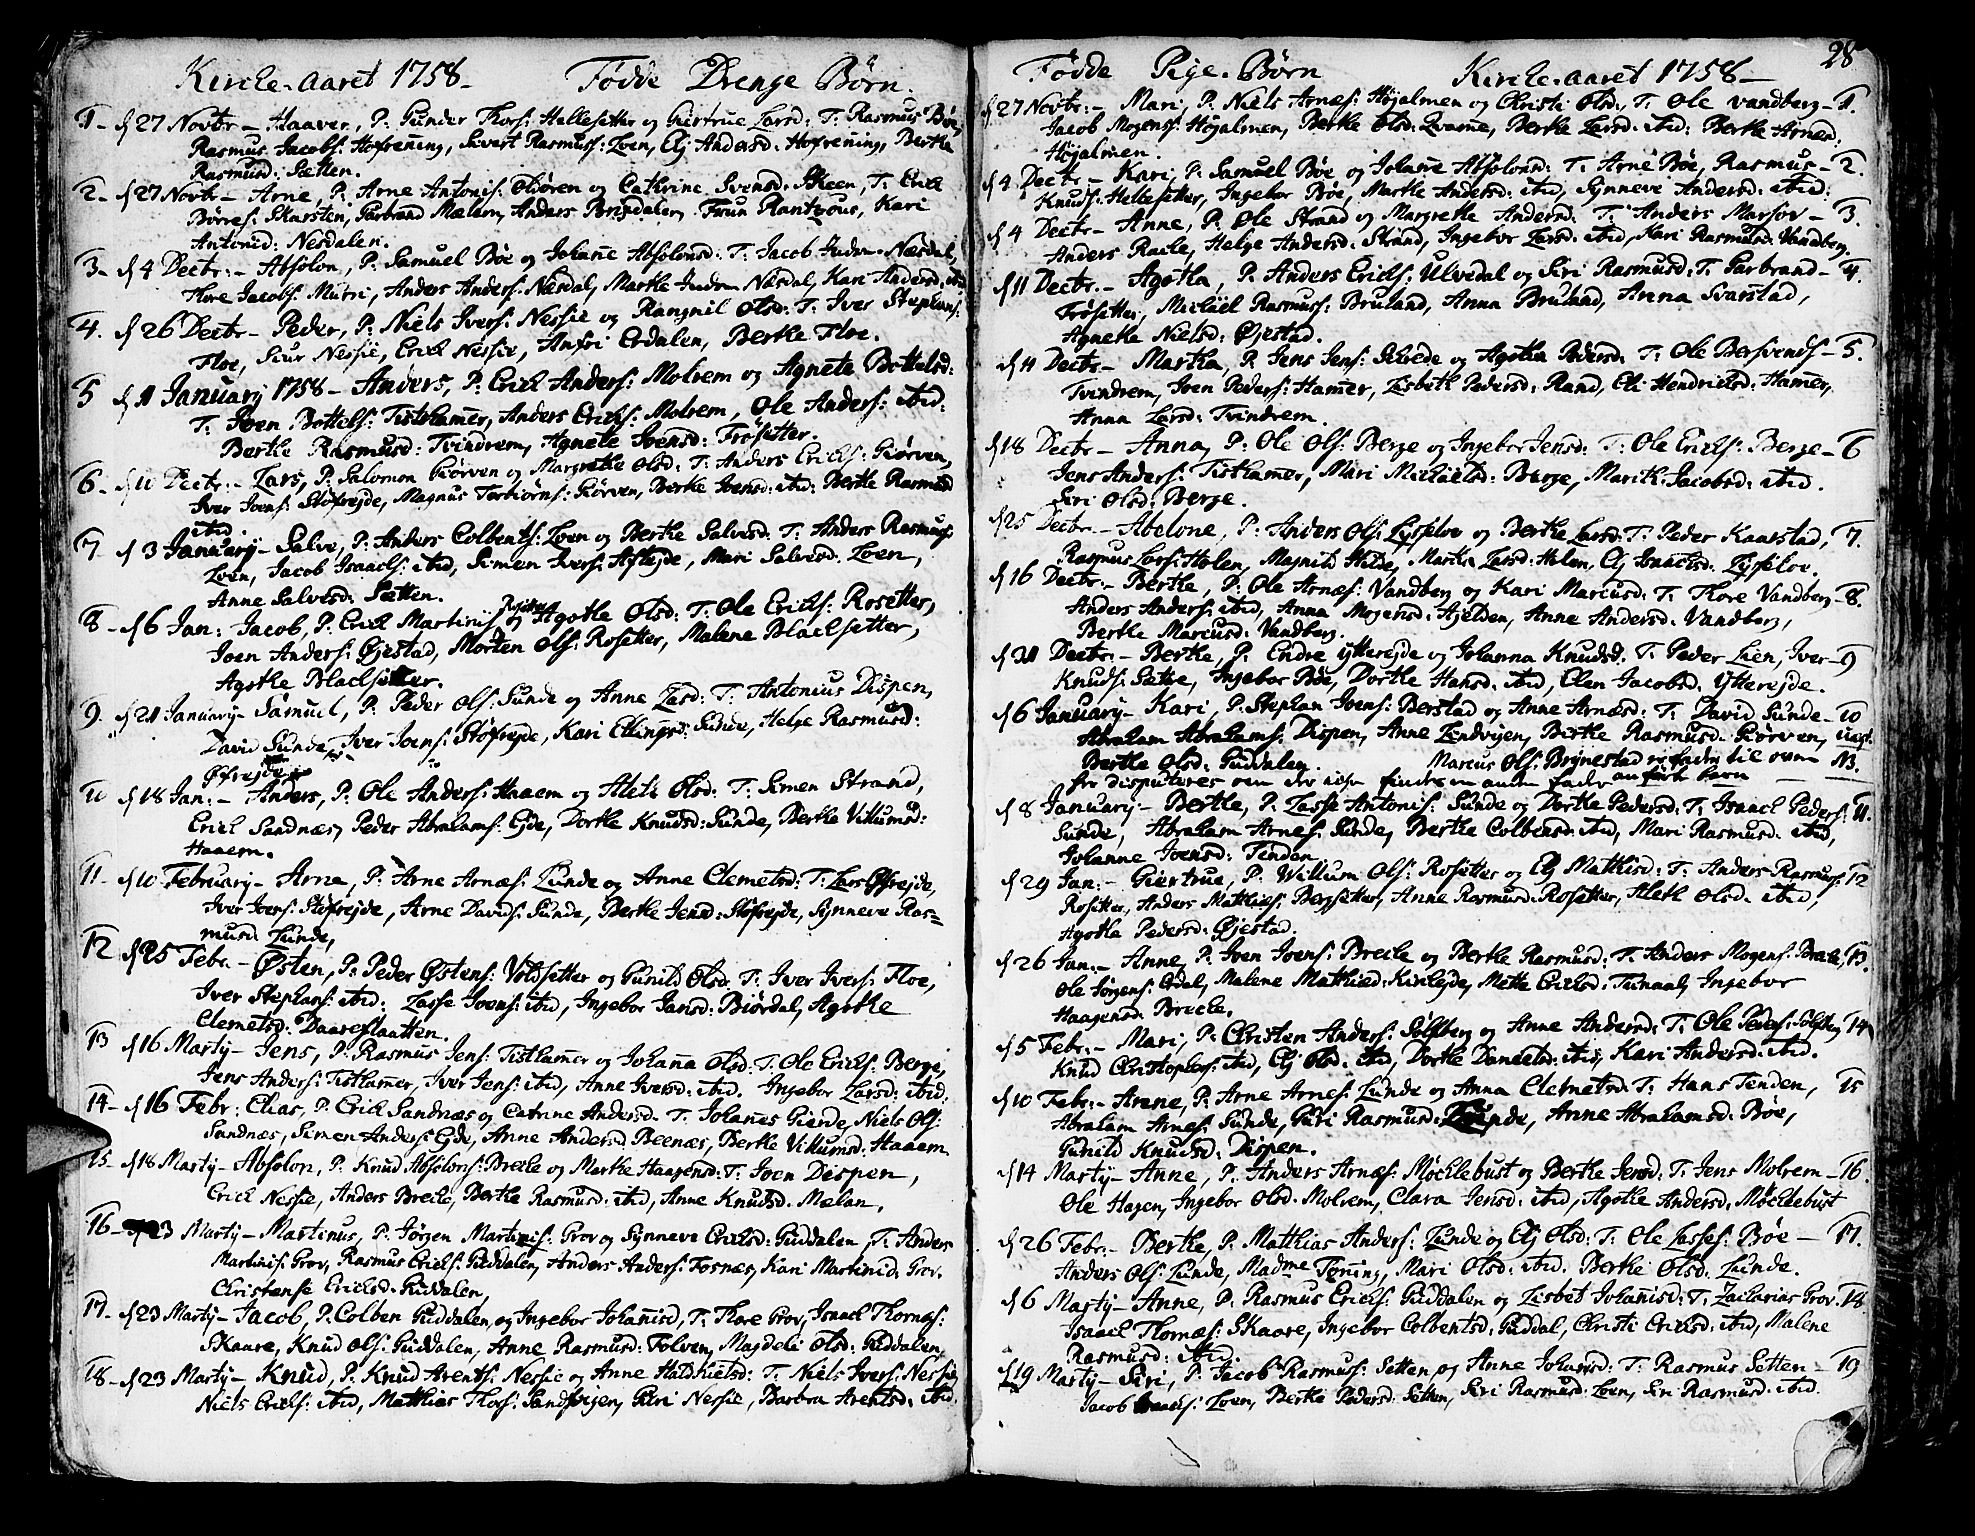 Kircke-aaret 1758- Fødde Drenge Børn.
1- d 27 Novbr- Haaver, P: Gunder Thors: Hellesetter og Giertrue Larsd: T: Rasmus Bøe,
Rasmus Jacobs: Hofrening, Sivert Rasmuss: Loen, Elj Andersd: Hofrening, Berthe
Rasmusd: Sætten.
2- d 27 Novbr- Arne, P: Arne Antonis: Oldøren og Cathrine Svensd: Skeen, T: Erick
Børres: Skarsten, Garbrand Mælem, Anders Brixdalen, Fruu Plantzous, Kari
Antonid: Nesdalen.
3- d 4 Decbr:- Absolon, P: Samuel Bøe og Johanne Absolonsd: T: Jacob Næsdal,
Thore Jacobs: Muri, Anders Anders: Næsdal, Marthe Næsdal, Kari Andersd: ibid
4. d 26 Decbr- Peder, P: Niels Ivers: Nessie og Rangnil Olsd: T: Iver Stephans:
Floe, Siur Nessie, Erick Nessie, Anfri Erdalen, Berthe Floe.
5 d 1 January 1758- Anders, P: Erick Anders: Molrem og Agnete Bottelsd:
T: Joen Bottels: Tisthamer, Anders Ericks: Molrem, Ole Anders: ibid:
Berthe Rasmusd: Tvindrem, Agnete Joensd: Frøsetter.
6- d 11 Decbr:- Lars, P: Salomon Giørven og Margrethe Olsd: T: Anders Ericks: Giørven,
Iver Joens: Støfrejde, Magnus Torbiørns: Giørven, Berthe Joensd: ibid: Berthe Rasmusd
ibid.
7. d 3 January- Salve, P: Anders Colbents: Loen og Berthe Salvesd: T: Anders Rasmuss:
Loen, Jacob Isaacks: ibid, Simen Ivers: Aflejde, Mari Salvesd: Loen,
Anne Salvesd: Sætten.
8- d 6 Jan: Jacob, P: Erick Martinis og Agothe Olsd: T: Ole Ericks: Rosetter,
Joen Anders: Øjestad, Morten Ols: Rosetter, Malene Blacksetter,
Agothe Blacksetter.
9. d 21 January- Samuel, P: Peder Ols: Sunde og Anne Lasd: T: Antonius Dispen,
David Sunde, Iver Joens: Støfrejde, Kari Ellingsd: Sunde, Helge Rasmusd:
Øfrejde
10 d 18 Jan:- Anders, P: Ole Anders: Haaem og Aleti Olsd: T: Simen Strand,
Erick Sandnæs, Peder Abrahams: Ejde, Dorthe Knudsd: Sunde, Berthe Villumsd:
Haaem.
11- d 10 February- Arne, P: Arne Arnes: Lunde og Anne Clemetsd: T: Lars Øfrejde,
Iver Joens: Støfrejde, Arne Davids: Sunde, Berthe Jensd: Støfrejde, Synneve Ras=
musd: Lunde,
12 d 25 Febr:- Østen, P: Peder Østens: Voldsetter og Gunild Olsd: T: Iver Ivers: Floe,
Iver Stephans: ibid. Lasse Joens: ibid, Ingebor Jansd: Biørdal, Agothe
Clemetsd: Daareslaatten.
13 d 16 Marty- Jens, P: Rasmus Jens: Tisthamer og Johana Olsd: T: Ole Ericks: Berge,
Jens Anders: Tisthamer, Iver Jens: ibid, Anne Iversd: ibid. Ingebor Larsd: ibid.
14- d 16 Febr: Elias, P: Erick Sandnæs og Catrine Andersd: T: Johanes Gierde, Niels Ols:
Sandnæs, Simen Anders: Ejde, Anne Andersd Beenæs, Berthe Villumsd: Haaem
15- d 18 Marty- Absolon, P: Knud Absolons: Brecke og Marthe Haagensd: T: Joen Dispen,
Erick Nessie, Anders Brecke, Berthe Rasmusd: ibid, Anne Knudsd. Mælan,
16- 23 Marty- Martinus, P: Jørgen Martinis: Grov og Synneve Ericksd: Guddalen, T: Anders
Martinis: Grov, Rasmus Ericks: Guddalen, Anders Anders: Fosnæs, Kari Martinid: Grov.
Christense Ericksd. Guddalen,
17- d 23 Marty- Jacob, P: Colben Guddalen, og Ingebor Johanisd, T: Thore Grov, Isaack Thornæs:
Skaare, Knud Ols: Guddalen, Anne Rasmusd: Folven, Magdeli Olsd: Guddalen,
18- d 23 Marty- Knud, P: Knud Arents: Nessie og Anne T: Niels Ivers: Nessie,
Niels Ericks: ibid, Matthias Thors: Sandvigen, Guri Nessie, Barbra Arentsd: ibid.
28
Fødde Pige-Børn Kircke-aaret 1758-
d 27 Novbr:- Mari, P: Niels Arnes: Højalmen og Christi Olsd: T: Ole Vandberg- 1.
Jacob Mogens: Højalmen, Berthe Olsd: Qvame, Berthe Larsd: ibid: Berthe Arnesd:
Højalmen.
d 4 Decbr- Kari, P: Samuel Bøe og Johanne Absolonsd: T: Arne Bøe, Rasmus- 2.
Knuds: Hellesetter, Ingebor Bøe, Marthe Andersd: ibid, Synneve Andersd: ibid:
d 4 Decbr- Anne, P: Ole Strand og Margrethe Andersd: T: Anders Marsov- 3.
Anders Racke, Helge Andersd: Strand, Ingebor Larsd: ibid, Kari Rasmusd: Vandberg.
d 11 Decbr:- Agotha, P: Anders Ericks: Ulvedal og Siri Rasmusd: T: Garbrand- 4.
Frøsetter, Michael Rasmuss: Bruland, Anna Bruland, Anna Svarstad,
Agnethe Nielsd: Øjestad.
d 11 Decbr- Martha, P: Jens Jens: Schrede og Agotha Pedersd: T: Ole Bersvends- 5.
Tvindrem, Joen Peders: Hamer, Lisbeth Pedersd: Rand, Eli Hendricksd: Hamer,
Anna Larsd: Tvindrem.
d 18 Decbr- Anna, P: Ole Ols: Berge og Ingebor Jensd: T: Ole Ericks: Berge- 6
Jens Anders: Tisthamer, Mari Michaelsd: Berge, Marith: Jacobsd: ibid.
Siri Olsd: Berge.
d 25 Decbr- Abelone, P: Anders Ols: Lyslov og Berthe Larsd: T: Peder Kaarstad, 7.
Rasmus Lars: Holen, Magnild Hilde, Martha Larsd: Holen, Elj Isaacksd: Lyslov.
d 16 Decbr:- Berthe, P: Ole Arnes: Vandberg og Kari Marcusd: T: Thore Vandberg- 8.
Anders Anders: ibid, Anna Mogensd: Hjelden, Anne Andersd: Vandberg,
Berthe Marcusd: Vandberg.
d 31 Decbr:- Berthe, P: Endre Ytterejde og Johanna Knudsd: T: Peder Lien, Iver- 9
Knuds: Sætre, Ingebor Bøe, Dorthe Hansd: ibid, Elen Jacobsd: Ytterejde.
d 6 January- Kari, P: Stephan Joens: Berstad og Anne Arnesd: T: David Sunde- 10
Abraham Abrahams: Dispen, Anne Lendvigen, Berthe Rasmusd. Giørven, uægt.
Berthe Olsd: Guddalen. Marcus Ols: Brynestad er fader til oven N3.
for disputeres om der icke findes en anden fader anført barn
d 8 January- Berthe, P: Lasse Antonis: Sunde og Dorthe Pedersd: T: Isaack Peders: 11.
Sunde, Abraham Arnes: Sunde, Berthe Colbensd: ibid, Mari Rasmusd: ibid,
Johanne Joensd: Tenden
d 29 Jan:- Giertrue, P: Willum Ols: Rosetter og Elj Mathisd: T: Anders Rasmuss: 12
Rosetter, Anders Matthies: Bergsetter, Anne Rasmusd: Rosetter, Aleth Olsd. ibid,
Agothe Pedersd: Øjestad.
d 26 Jan:- Anne, P: Joen Joens: Brecke og Berthe Rasmusd: T: Anders Mogens: Brecke, 13.
Ole Jørgens: Erdal, Malene Mathisd: Kirkejde, Mette Ericksd: Tunaal, Ingebor
Haagensd. Brecke.
d 5 Febr:- Mari, P: Christen Anders: Solsberg og Anne Andersd: T: Ole Peders: Solsberg 14
Knud Christophers: ibid, Elj Olsd: ibid, Dorthe Danielsd: ibid, Kari Andersd: ibid.
d 10 Febr:- Arene, P: Arne Arnes: Lunde og Anna Clemetsd: T: Hans Tenden, 15
Abraham Arnes: Sunde, Guri Rasmusd: Lunde, Anne Abrahamsd: Bøe,
Gunild Knudsd: Dispen.
d 14 Marty- Anne, P: Anders Arnes: Møcklebust og Berthe Jensd: T: Jens Molrem- 16.
Ole Hagen, Ingebor Olsd. Molrem, Clara Jensd: ibid, Agothe Andersd: Møcklebust
d 26 Febr:- Berthe, P: Matthias Anders: Lunde og Elj Olsd: T: Ole Lasses: Bøe- 17.
Anders Ols: Lunde, Madme Tønning, Mari Olsd: ibid. Berthe Olsd: Lunde.
d 6 Marty- Anne, P: Rasmus Ericks: Guddalen og Lisbet Johanisd: T: Zacharias Grov- 18.
Isaack Thornæs: Skaare, Ingebor Colbentsd: Guddal, Christi Ericksd: ibid, Malene
Rasmusd: ibid.
d 19 Marty- Siri, P: Jacob Rasmus: Setten og Anne Johansd: T: Rasmus Setten- 19
Jacob Isaacks: Loen, Berthe Pedersd: Setten, Siri Rasmusd: Loen, Siri Rasmusd ibid.